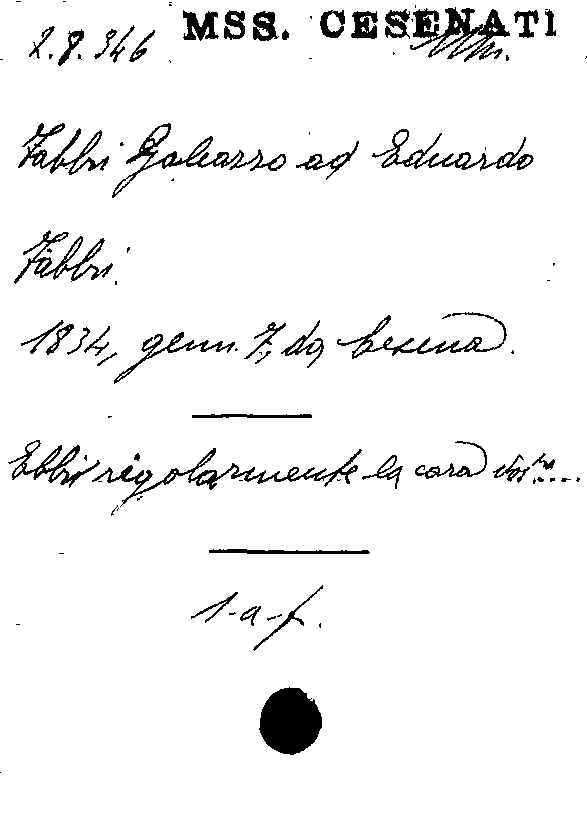 MSS. CESENATI
2.8.346
Fabbri Galeazzo ad Eduardo
Fabbri.
1834, genn. 7, da Cesena.
Ebbi regolarmente la cara vos.ra....
1-a-f.